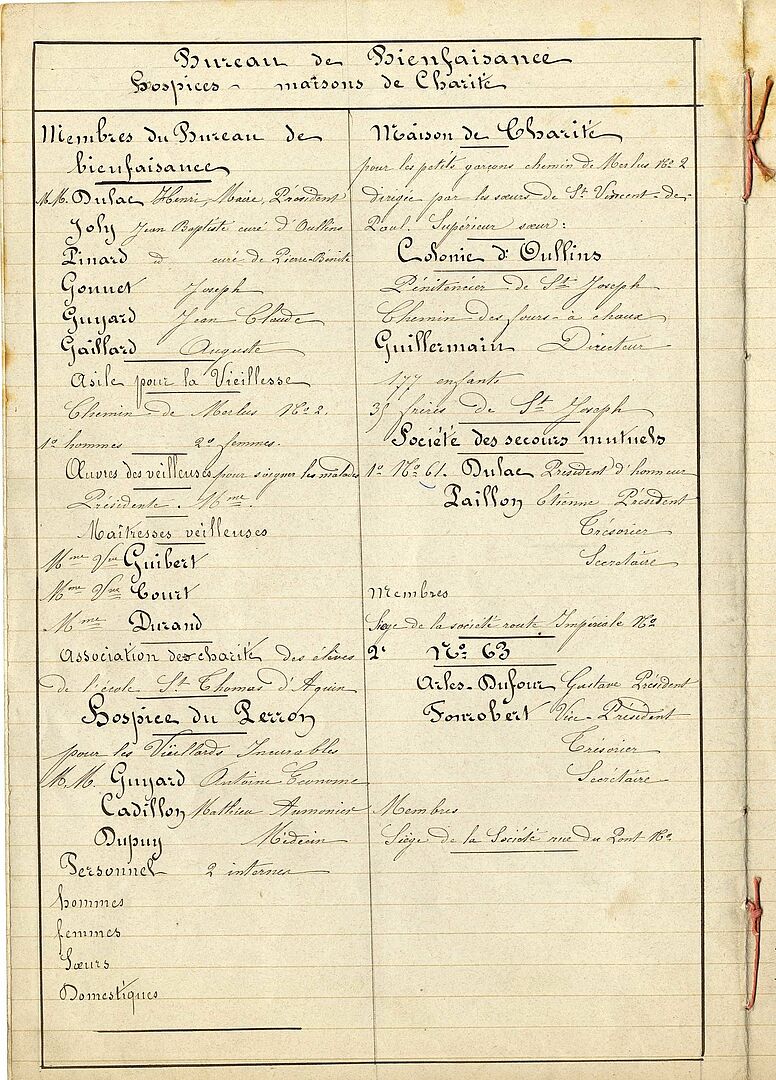 Bureau de Bienfaisance
Hospices - maisons de Charité
Membres du Bureau de
bienfaisance
M.M. Dulac Henri, Maire, Président
Joly Jean Baptiste curé d'Oullins
Pinard id curé de Pierre-Bénite
Gonnet Joseph
Guyard Jean Claude
Gaillard Auguste
Asile pour la Vieillesse
Chemin de Merlus No 2.
1o hommes 2o femmes.
Œuvres des veilleuses pour soigner les malades
Présidente. Mme.
Maîtresses veilleuses
Mme Vve Guibert
Mme Vve Court
Mme Durand
Association des charité des élèves
de l'école St Thomas d'Aquin
Hospice du Perron
pour les Vieillards Incurables
M.M. Guyard Antoine Econome
Cadillon Mathieu Aumonier
Dupuy Médecin
Personnel 2 internes
hommes
femmes
Sœurs
Domestiques
Maison de Charité
pour les petits garçons chemin de Merlus No 2
dirigée par les sœurs de St Vincent-de-
Paul. Supérieur sœur:
Colonie d'Oullins
Pénitencier de St Joseph
Chemin des fours-à chaux
Guillermain Directeur
177 enfants
35 frères de St Joseph
Société des secours mutuels
1o No 61. Dulac President d'honneur
Paillon Etienne Président
Trésorier
Secretaire
Membres
Siège de la société route Impériale No
2o No 63
Arles-Dufour Gustave Président
Fonrobert Vice-Président
Trésorier
Secrétaire
Membres
Siège de la Société rue du Pont No